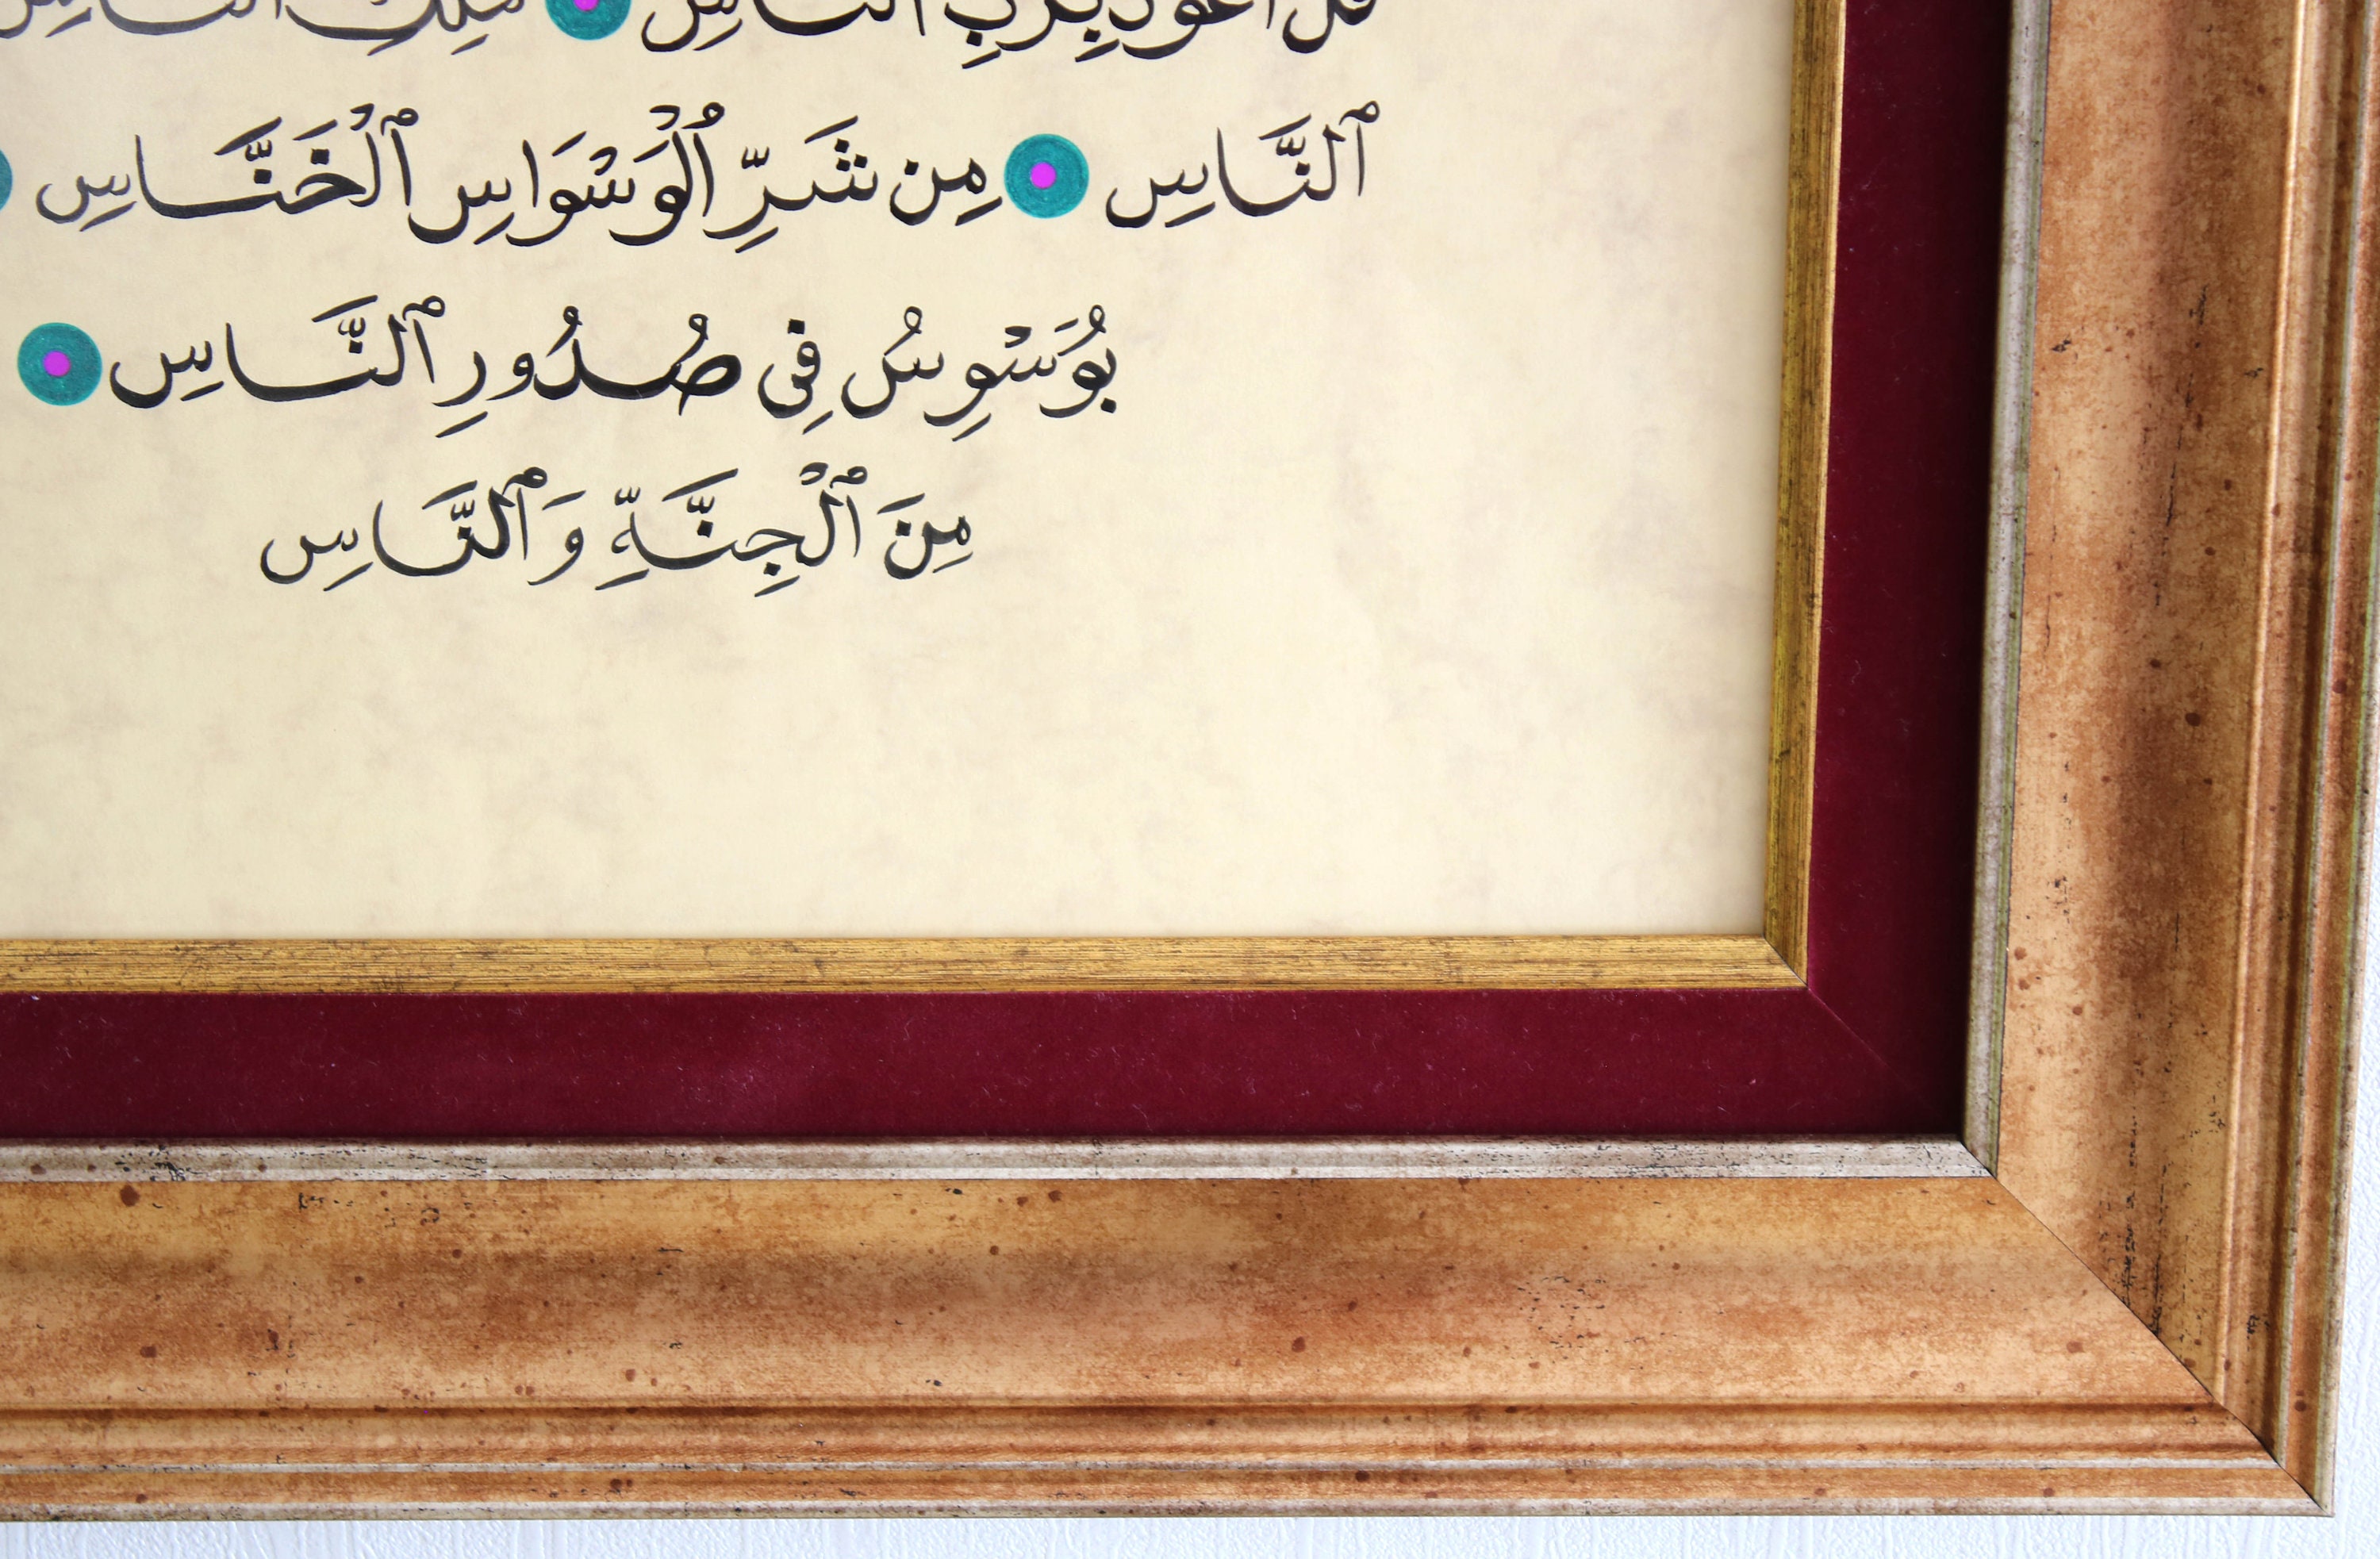 قل أعوذ برب الناس ملك الناس
ٱلنَّاسِ مِن شَرِّ ٱلْوَسْوَاسِ ٱلْخَنَّاسِ
يُوَسْوِسُ فِى صُدُورِ ٱلنَّاسِ
مِنَ ٱلْجِنَّةِ وَٱلنَّاسِ